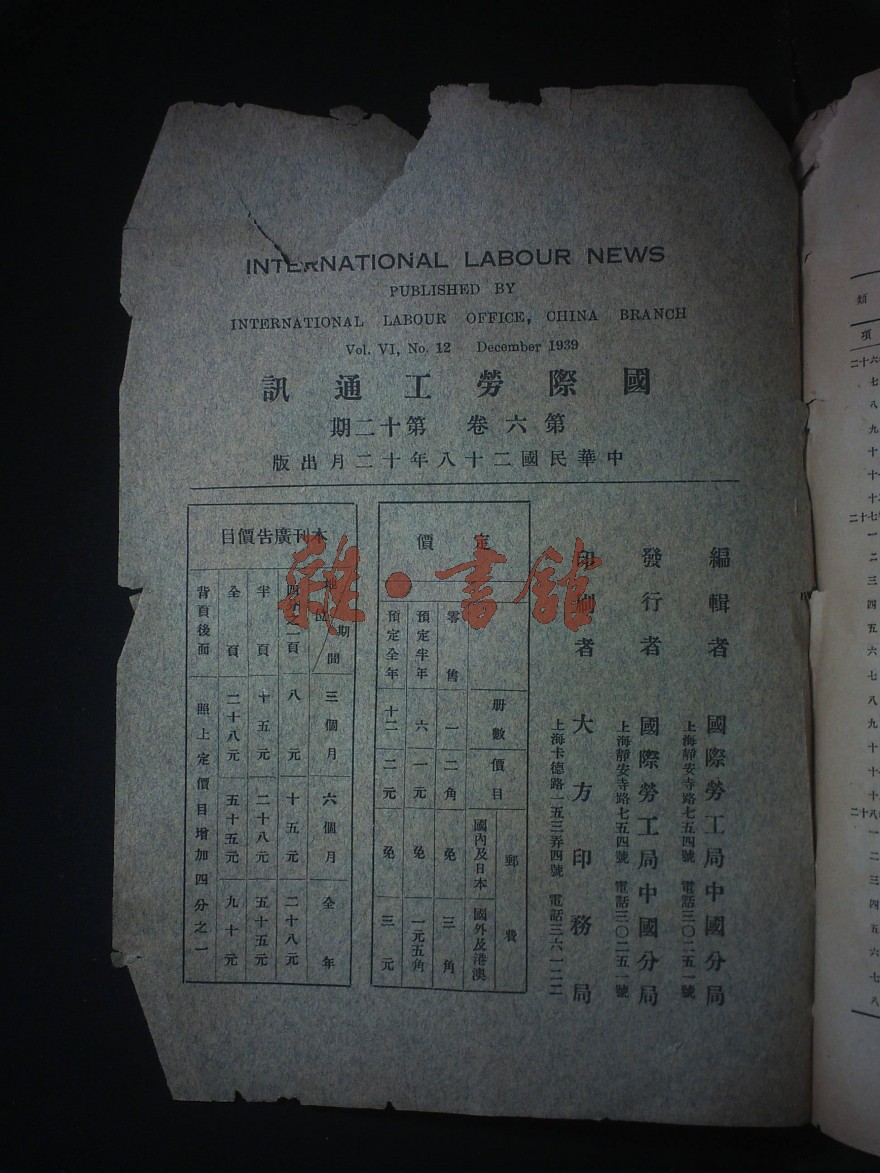 INTERNATIONAL LABOUR NEWS
PUBLISHED BY
INTERNATIONAL LABOUR OFFICE, CHINA BRANCH
Vol. VI, No. 12 December 1939
國際勞工通訊
第六卷 第十二期
中華民國二十八年十二月出版
編輯者 國際勞工局中國分局
上海靜安寺路七五四號 電話三〇二五一號
發行者 國際勞工局中國分局
上海靜安寺路七五四號 電話三〇二五一號
印刷者 大方印務局
上海卡德路一五三弄四號 電話三六一二二
定價
冊數 價目 郵費
國內及日本 國外及港澳
零售 一 二角 免 三角
預定半年 六 一元 免 一元五角
預定全年 十二 二元 免 三元
本刊廣告價目
地位 期間 三個月 六個月 全年
四分之一頁 八元 十五元 二十八元
半頁 十五元 二十八元 五十五元
全頁 二十八元 五十五元 九十元
背頁後面 照上定價目增加四分之一
雜·書館
類
項
二十六
七
八
九
十
十
十
二十七
一
二
三
四
五
六
七
八
九
十
十
十
二十八
一
二
三
四
五
六
七
八